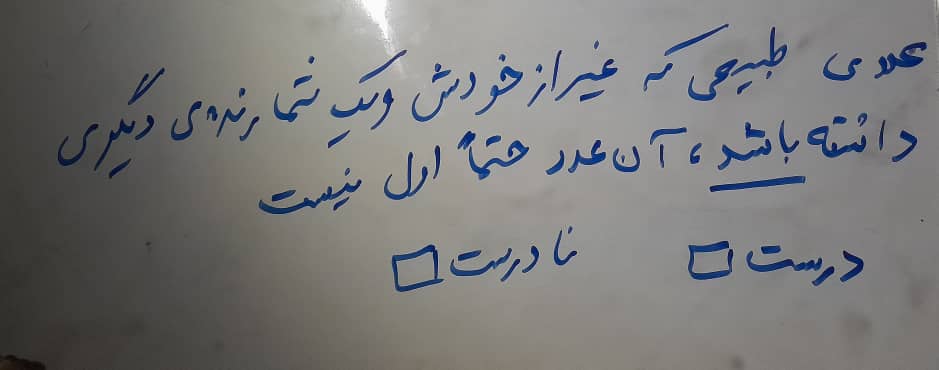 عددی طبیعی که غیر از خودش و یک شمارنده‌ی دیگری
داشته باشد، آن عدد حتماً اول نیست
درست □ نادرست □